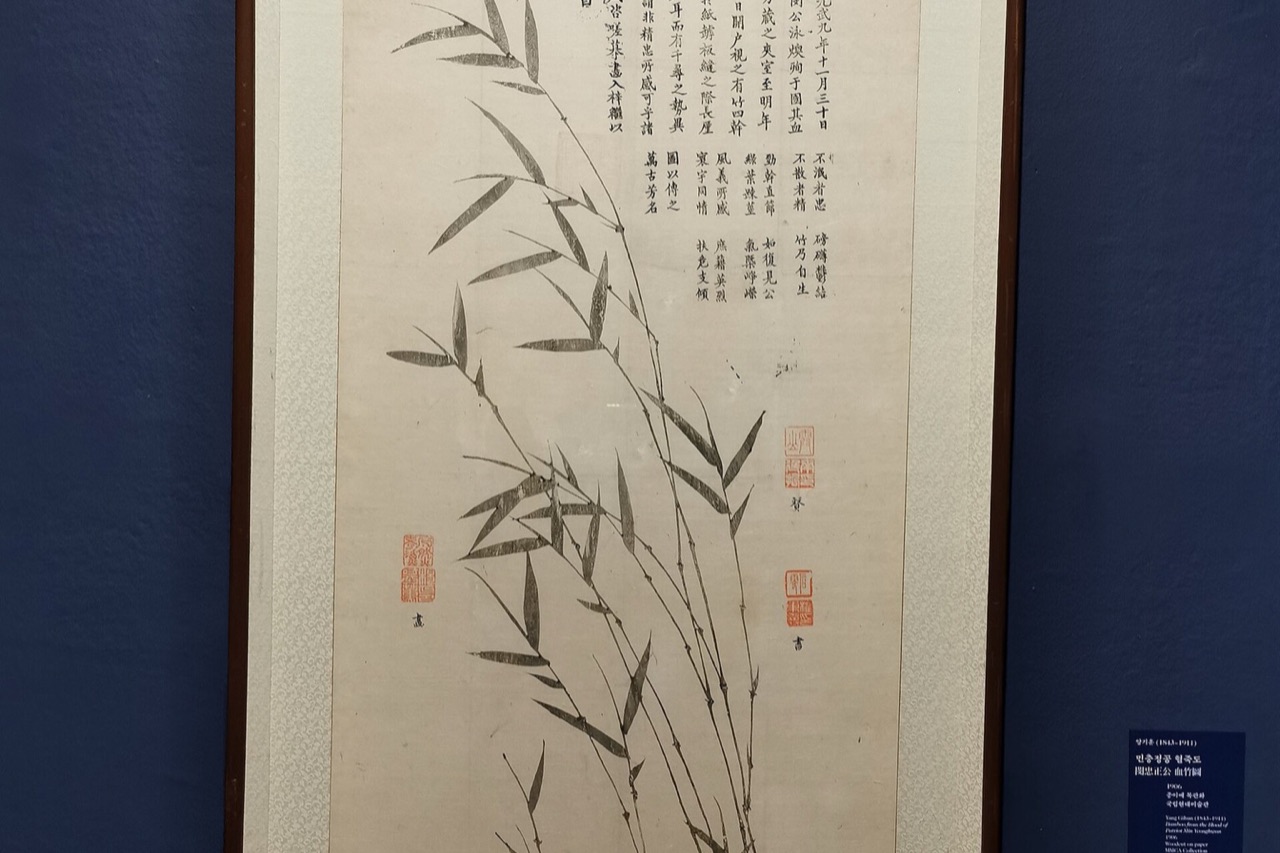 光武九年十一月三十日
閔公泳煥殉于國其血
藏之夾室至明年
日開戶視之有竹四幹
紙牗板縫之際長厪
耳而有千尋之勢異
謂非精忠所感可乎諸
咨嗟摹畫入梓繼以
不泯者忠 磅礴鬱結
不散者精 竹乃自生
勁幹直節 如復見公
綠葉踈篁 氣槩崢嶸
風義所感 庶籍英烈
寰宇同情 扶危支傾
圖以傳之
萬古芳名
贊
書
畫
양기훈 (1843–1911)
민충정공 혈죽도
閔忠正公 血竹圖
1906
종이에 목판화
국립현대미술관
Yang Gihun (1843–1911)
Bamboo from the Blood of
Patriot Min Yeonghwan
1906
Woodcut on paper
MMCA Collection